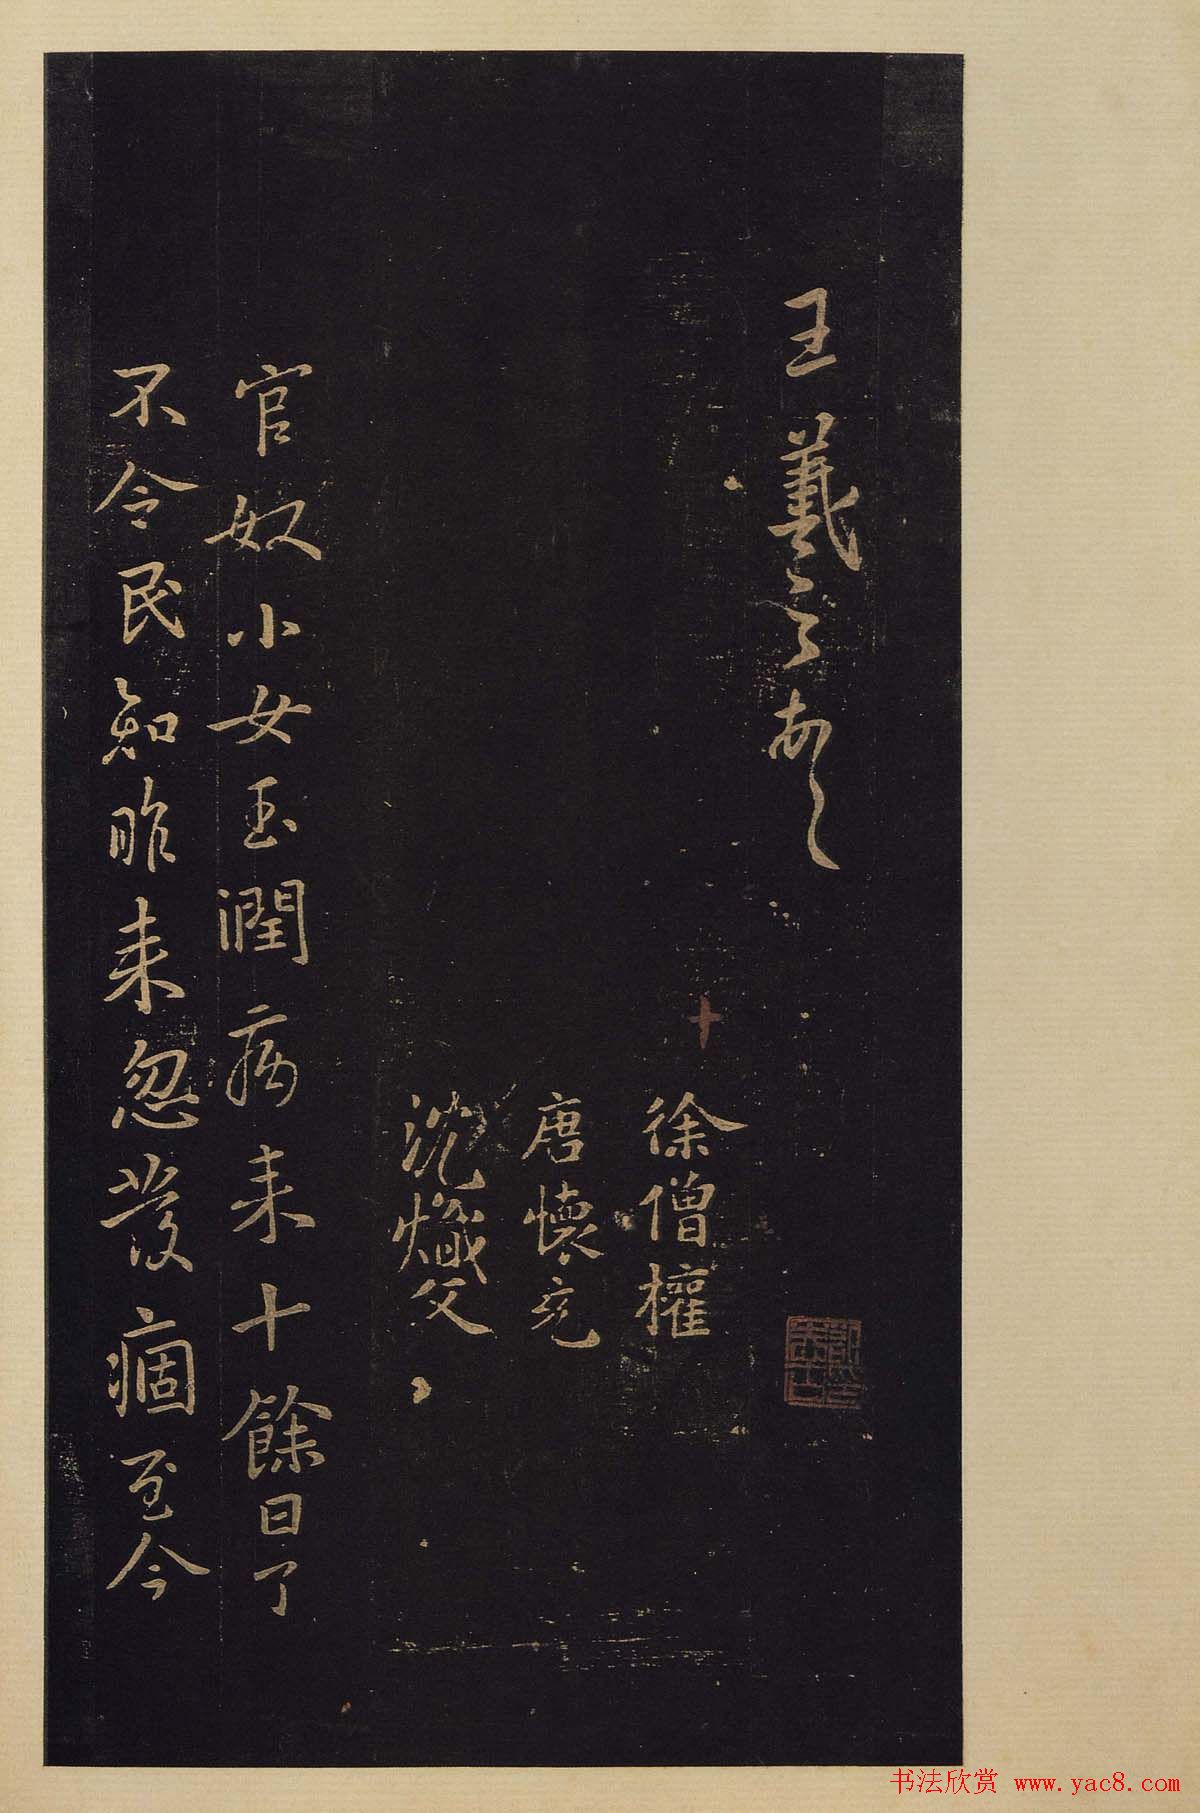 王羲之頓首
徐僧權
唐懷充
沈熾文
官奴小女玉潤病来十餘日了
不令民知昨来忽發痼至今
书法欣赏 www.yac8.com